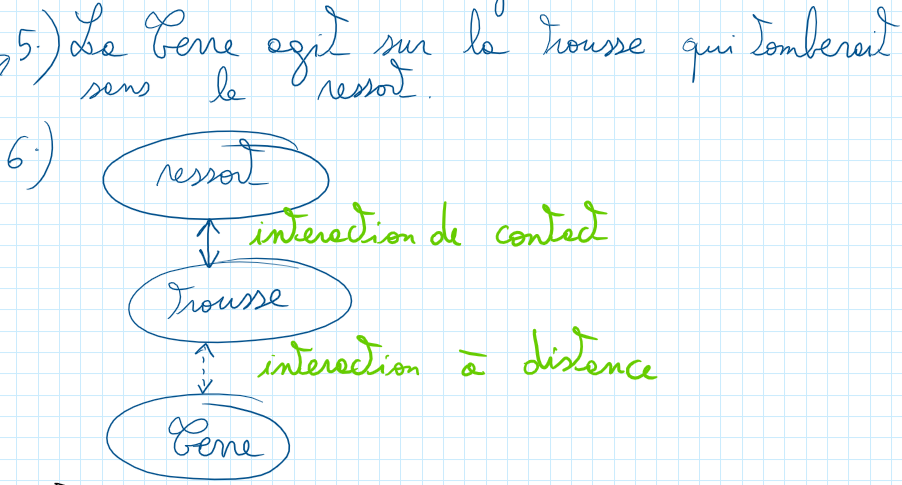 5.) La Terre agit sur la trousse qui tomberait
sans le ressort.
6.)
ressort
interaction de contact
trousse
interaction à distance
Terre